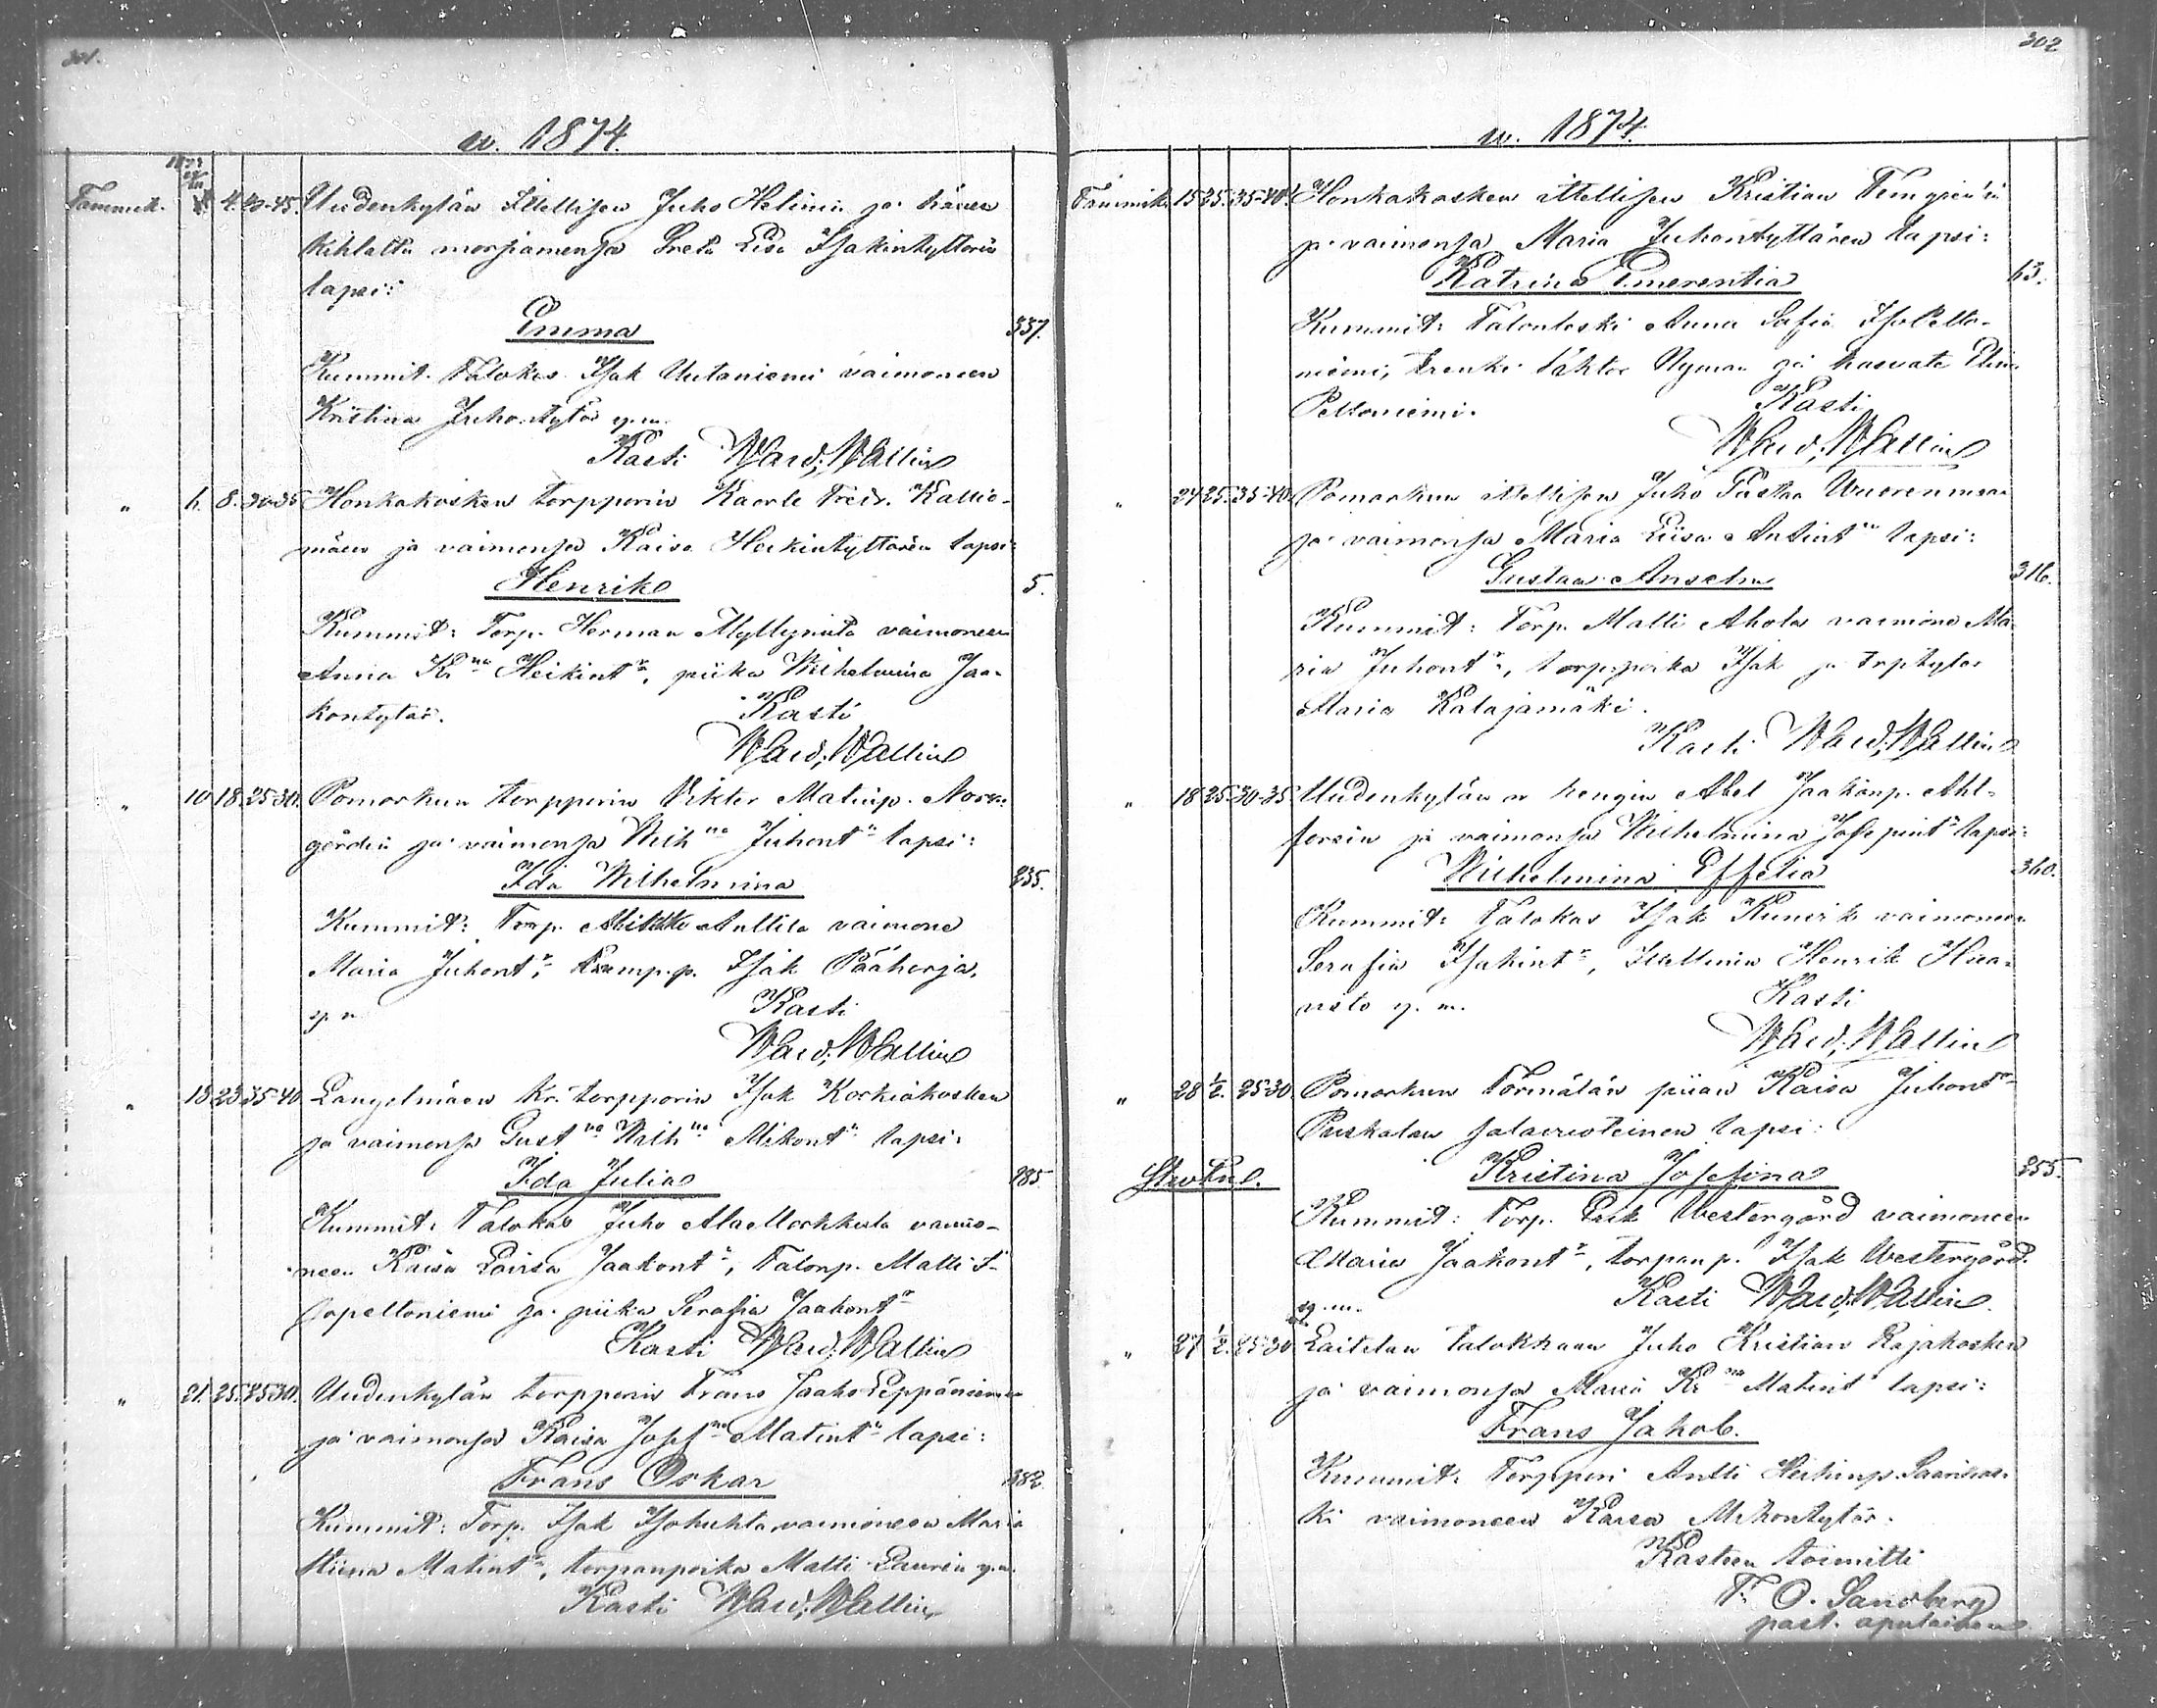 301.
w. 1874.
Tammik. 4. 40-45. Uudenkylän Itellisen Juho Helinin ja hänen
kihlattu morsiamensa Greta Liisa Isakintyttären
lapsi:
Emma 337.
Kummit. Talokas Isak Uutaniemi vaimoneen
Kristiina Juhontytär y. m.
Kasti Ward. Wallin
" 6. 8. 30-35 Honkakosken torpparin Kaarle Fredr. Kallio-
mäen ja vaimonsa Kaisa Heikintyttären lapsi:
Henrik 5.
Kummit: Torp. Herman Myllyniita vaimoneen
Anna Kr:na Heikint:r, piika Wilhelmina Jaa-
kontytär. Kasti
Ward. Wallin
" 10 18. 25-30. Pomarkun torpparin Viktor Matinp. Norr-
gårdin ja vaimonsa Wilh:na Juhont:n lapsi:
Ida Wilhelmina 235.
Kummit: Torp. Anttila vaimone
Maria Juhont:r, p. Isak Pääharja,
y. m. Kasti
Ward. Wallin
" 13 23 35-40 Längelmäen kr. torpparin Isak Korkiakosken
ja vaimonsa Gust:va Wilh:na Mikont:n lapsi:
Ida Julia 285
Kummit: Talokas Juho AlaMockkala vaimo-
neen Kaisa Loisa Jaakont:r, Talonp. Matti I-
sopeltoniemi ja piika Serafia Jaakont:r
Kasti Ward. Wallin
" 21. 25. 25-30. Uudenkylän torpparin Frans Jaako Leppäniemen
ja vaimonsa Kaisa Josef:na Matint:n lapsi:
Frans Oskar 382
Kummit: Torp. Isak Isohuhta vaimoneen Maria
Stiina Matint:r, torpanpoika Matti Laurén y. m.
Kasti Ward. Wallin
302
w. 1874.
Tammik. 15 25. 35-40. Honkakosken itellisen Kristian
ja vaimonsa Maria Juhontyttären lapsi:
Katrina Emerentia 13.
Kummit: Talonleski Anna Sofia IsoPelto-
niemi, trenki Vihtor Nyman ja kasvate
Peltoniemi. Kasti
Ward. Wallin
" 24 25. 35-40. Pomarkun itellisen Juho Kustaa Wuorenmaan
ja vaimonsa Maria Liisa Antint:n lapsi:
Gustaa Anselm 316.
Kummit: Torp. Matti Ahola vaimone Ma-
ria Juhont:r, torp.poika Isak ja trptytär
Maria Katajamäki.
Kasti Ward. Wallin
" 18 25. 30-35 Uudenkylän rengin Abel Jaakonp. Ahl-
forsin ja vaimonsa Wilhelmina Josepint:n lapsi:
Wilhelmina Effelia 360.
Kummit: Talokas Isak vaimoneen
Serafia Isakint:r, Itellinen Henrik Haa-
visto y. m. Kasti
Ward. Wallin
" 28 1/2. 25-30. Pomarkun Törmälän piian Kaisa Juhont:r
Puskalan salavuoteinen lapsi:
Kristina Josefina 255.
Kummit: Torp. Erik Westergård vaimoneen
Maria Jaakont:r, torpanp. Isak Westergård
y. m. Kasti Ward. Wallin.
" 27 1/2. 25-30 Laitilan talokkaan Juho Kristian Rajakosken
ja vaimonsa Maria Kr:na Matint:n lapsi:
Frans Jakob.
Kummit: Torppari Antti Heikinp. Saarikos-
ki vaimoneen Kaisa Mikontytär.
Kasteen toimitti
F. O. Sandberg
past. apulainen